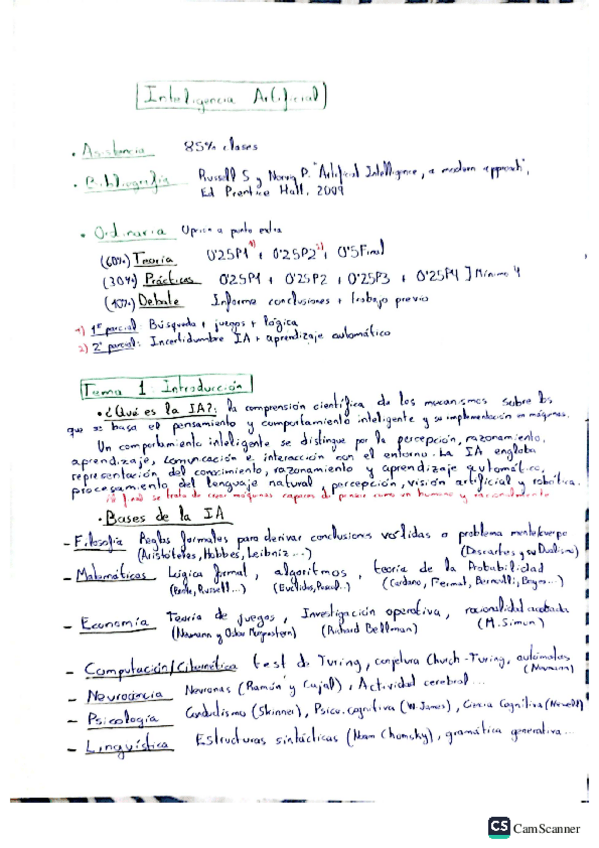 Inteligencia Artificial
• Asistencia 85% clases
• Bibliografía Russell S y Norvig P. "Artificial Intelligence, a modern approach",
Ed Prentice Hall. 2009
• Ordinaria
(60%) Teoría 0'25P1 1) + 0'25P2 2) + 0'5Final
(30%) Prácticas 0'25P1 + 0'25P2 + 0'25P3 + 0'25P4 ] Mínimo 4
(10%) Debate Informe conclusiones + trabajo previo
1) 1er parcial: Búsqueda + juegos + lógica
2) 2º parcial: Incertidumbre IA + aprendizaje automático
Tema 1 Introducción
• ¿Qué es la IA?: la comprensión científica de los mecanismos sobre los
que se basa el pensamiento y comportamiento inteligente y su implementación en máquinas.
Un comportamiento inteligente se distingue por la percepción, razonamiento,
aprendizaje, comunicación e interacción con el entorno. La IA engloba
representación del conocimiento, razonamiento y aprendizaje automático,
procesamiento del lenguaje natural, percepción, visión artificial y robótica.
Al final se trata de crear máquinas capaces de pensar como un humano y
• Bases de la IA
- Filosofía Reglas formales para derivar conclusiones válidas o problema mente/cuerpo
(Aristóteles, Hobbes, Leibniz...) (Descartes y su Dualismo)
- Matemáticas Lógica formal, algoritmos, teoría de la Probabilidad
(Boole, Russell...) (Euclides, Pascal...) (Cardano, Fermat, Bernoulli, Bayes...)
- Economía Teoría de juegos, Investigación operativa, racionalidad acotada
(Neumann y Oskar Morgenstern) (Richard Bellman) (M. Simon)
- Computación/Cibernética test de Turing, conjetura Church-Turing, autómatas
(Neumann)
- Neurociencia Neuronas (Ramón y Cajal), Actividad cerebral...
- Psicología Conductismo (Skinner), Psico. cognitiva (W. James), Ciencia Cognitiva (Newell)
- Lingüística Estructuras sintácticas (Noam Chomsky), gramática generativa...
CS CamScanner